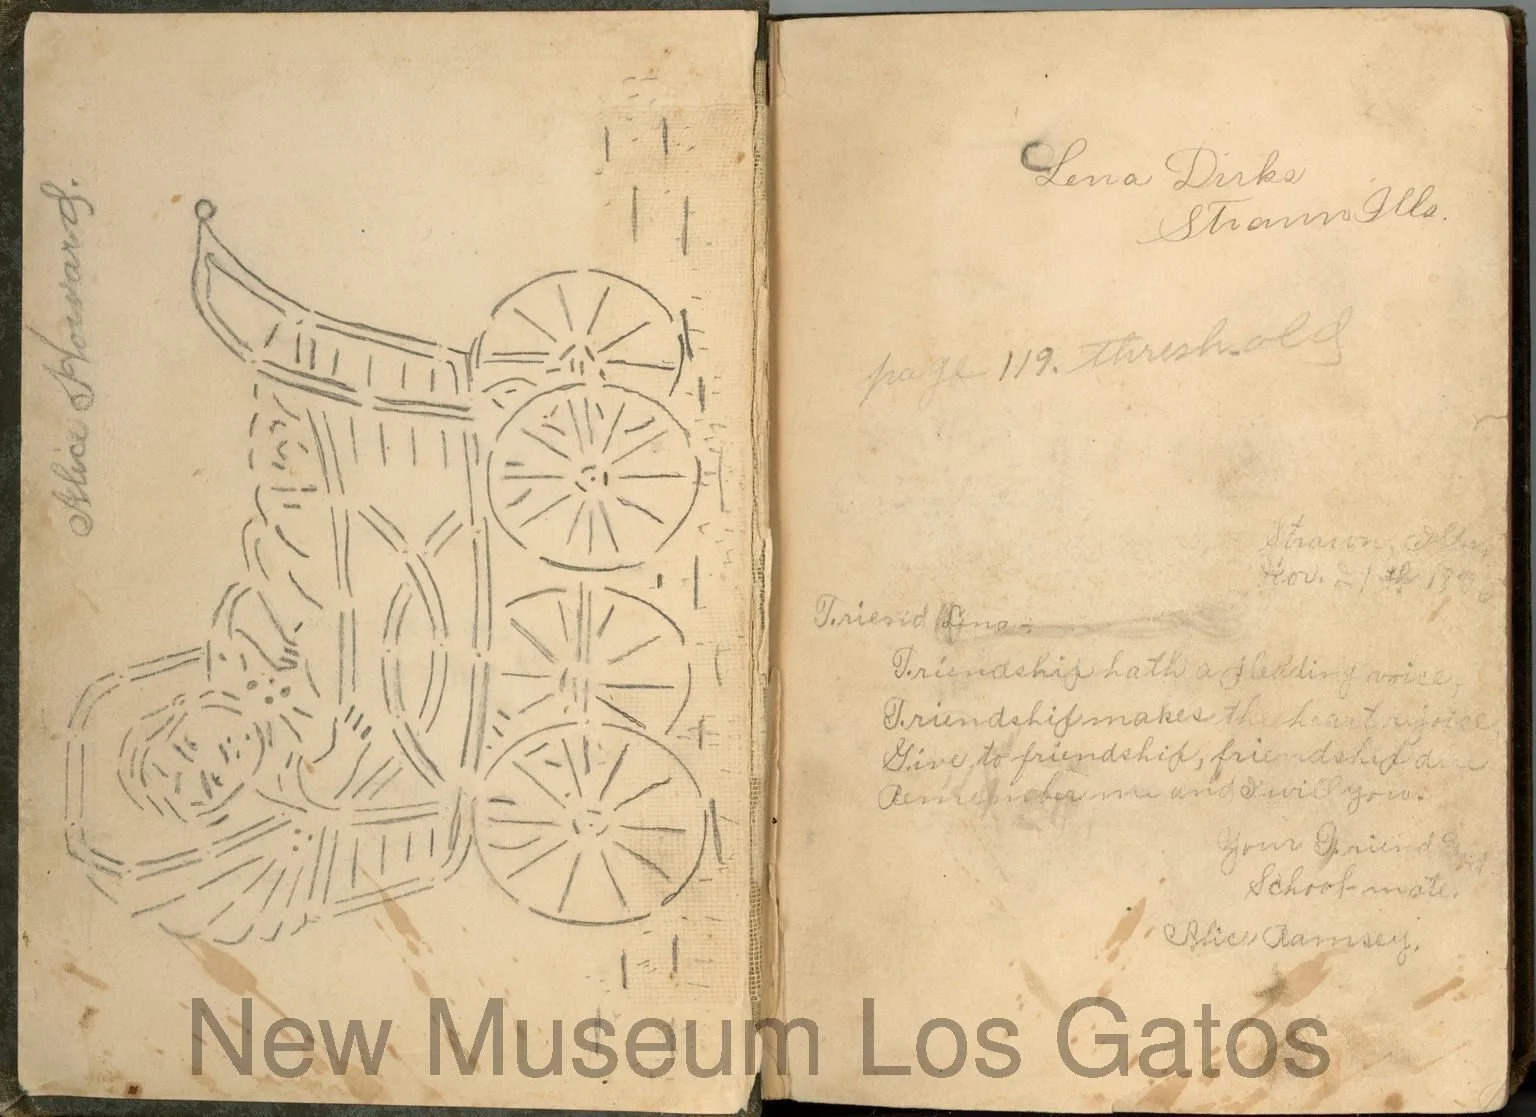 Alice Howard.
Lena Dirks
Strawn Ills.
page 119. threshold
Strawn, Ills,
Nov. 21th
Friend Lena-
Friendship hath a pleading voice,
Friendship makes the heart rejoice
Give to friendship, friendship due
Remember me and I will you.
Your Friend
School-mate.
Alice Ramsey.
New Museum Los Gatos